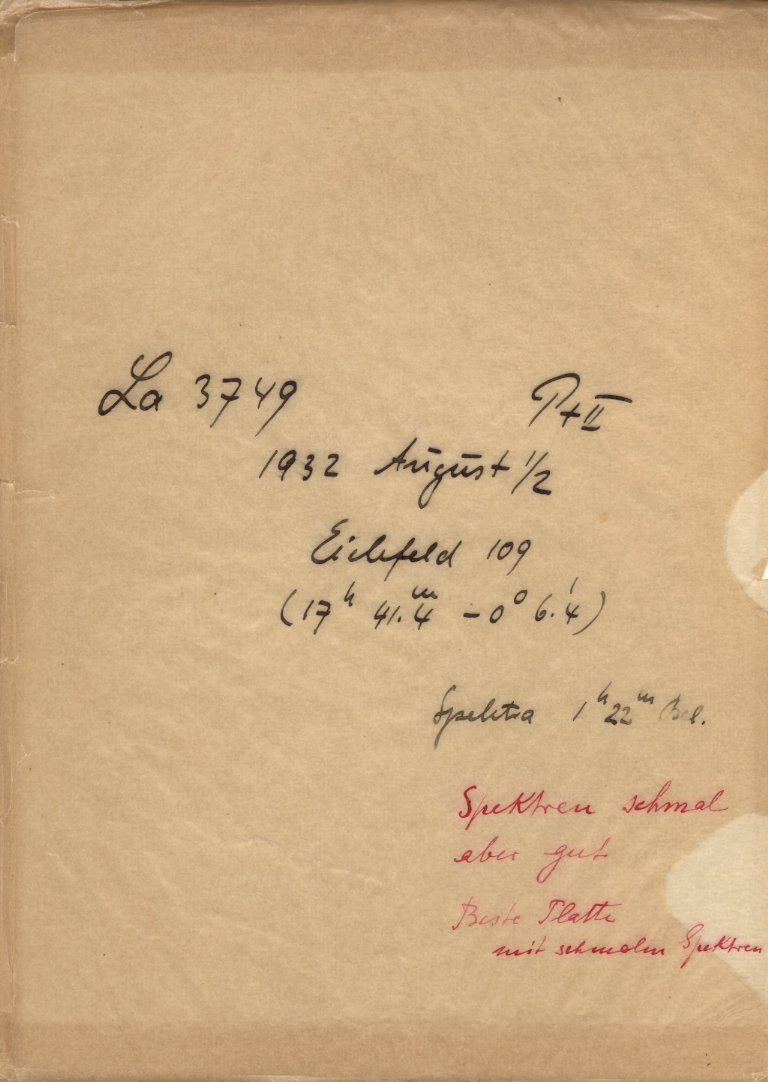 La 3749 P+II
1932 August 1/2
Eichfeld 109
(17ʰ 41.ᵐ4 -0° 6.′4)
Spektra 1ʰ22ᵐ Bel.
Spektren schmal
aber gut
Beste Platte
mit schmalen Spektren